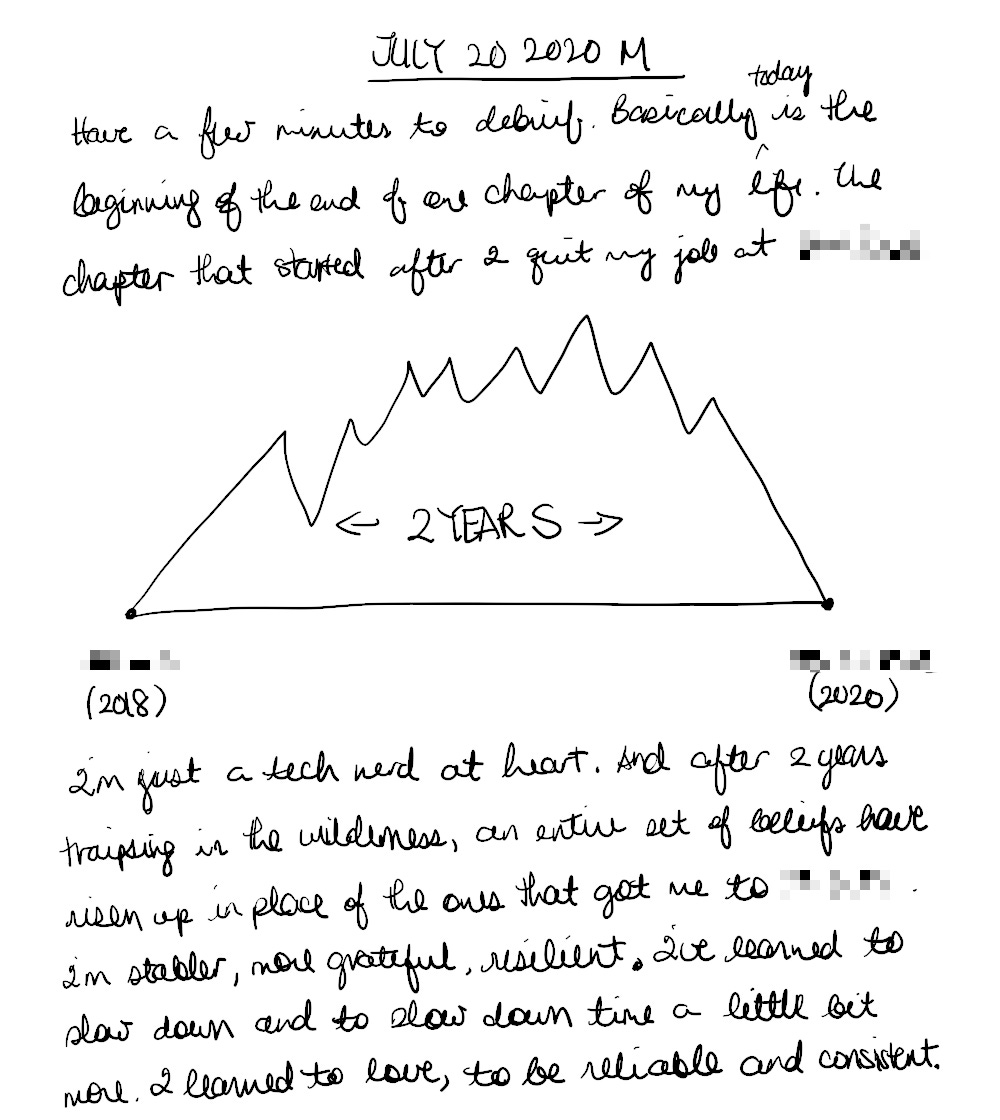 JULY 20 2020 M
today
Have a few minutes to debrief. Basically ^ is the
beginning of the end of one chapter of my life. The
chapter that started after I quit my job at
← 2 YEARS →
(2018)
(2020)
I'm just a tech nerd at heart. And after 2 years
traipsing in the wilderness, an entire set of beliefs have
risen up in place of the ones that got me to .
I'm stabler, more grateful, resilient. I've learned to
slow down and to slow down time a little bit
more. I learned to love, to be reliable and consistent.